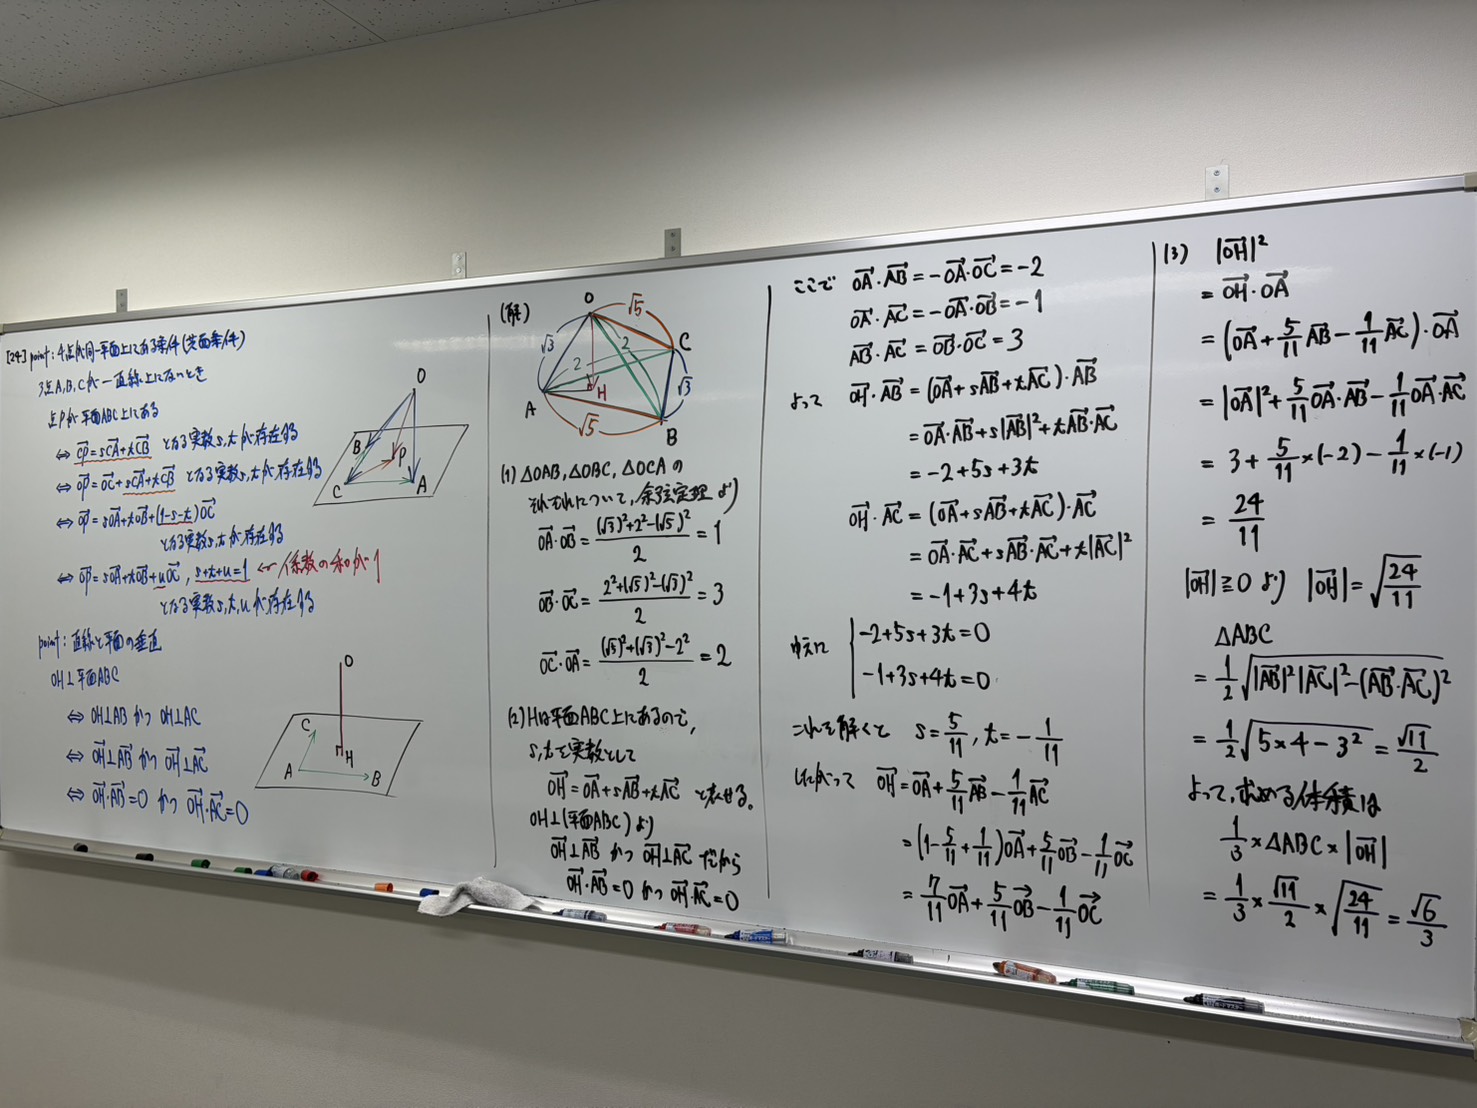 [24] point: 4点が同一平面上にある条件(共面条件)
3点A,B,Cが一直線上にないとき
点Pが平面ABC上にある
⇔ CP→=sCA→+tCB→ となる実数s,tが存在する
⇔ OP→=OC→+sCA→+tCB→ となる実数s,tが存在する
⇔ OP→=sOA→+tOB→+(1-s-t)OC→
となる実数s,tが存在する
⇔ OP→=sOA→+tOB→+uOC→, s+t+u=1 ← 係数の和が1
となる実数s,t,uが存在する
O
B
P
C
A
point: 直線と平面の垂直
OH⊥平面ABC
⇔ OH⊥AB かつ OH⊥AC
⇔ OH→⊥AB→ かつ OH→⊥AC→
⇔ OH→・AB→=0 かつ OH→・AC→=0
O
C
H
A
B
(解)
O
√5
√3
2
C
2
H
√3
A
√5
B
(1) △OAB, △OBC, △OCAの
それぞれについて,余弦定理より
OA→・OB→=((√3)²+2²-(√5)²)/2=1
OB→・OC→=(2²+(√5)²-(√3)²)/2=3
OC→・OA→=((√5)²+(√3)²-2²)/2=2
(2) Hは平面ABC上にあるので,
s,tを実数として
OH→=OA→+sAB→+tAC→ と表せる。
OH⊥(平面ABC)より
OH→⊥AB→ かつ OH→⊥AC→ だから
OH→・AB→=0 かつ OH→・AC→=0
ここで OA→・AB→=-OA→・OC→=-2
OA→・AC→=-OA→・OB→=-1
AB→・AC→=OB→・OC→=3
よって OH→・AB→=(OA→+sAB→+tAC→)・AB→
=OA→・AB→+s|AB→|²+tAB→・AC→
=-2+5s+3t
OH→・AC→=(OA→+sAB→+tAC→)・AC→
=OA→・AC→+sAB→・AC→+t|AC→|²
=-1+3s+4t
ゆえに { -2+5s+3t=0
-1+3s+4t=0
これを解くと s=5/11, t=-1/11
したがって OH→=OA→+5/11AB→-1/11AC→
=(1-5/11+1/11)OA→+5/11OB→-1/11OC→
=7/11OA→+5/11OB→-1/11OC→
(3) |OH→|²
=OH→・OA→
=(OA→+5/11AB→-1/11AC→)・OA→
=|OA→|²+5/11OA→・AB→-1/11OA→・AC→
=3+5/11×(-2)-1/11×(-1)
=24/11
|OH→|≧0 より |OH→|=√(24/11)
△ABC
=1/2√(|AB→|²|AC→|²-(AB→・AC→)²)
=1/2√(5×4-3²)=√11/2
よって,求める体積は
1/3×△ABC×|OH→|
=1/3×√11/2×√(24/11)=√6/3